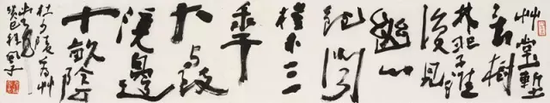 艸堂塹
西無樹
林非子誰
復見
幽心
飽聞
榿木三
年
大與致
溪邊
十畝陰
杜少陵
癸巳